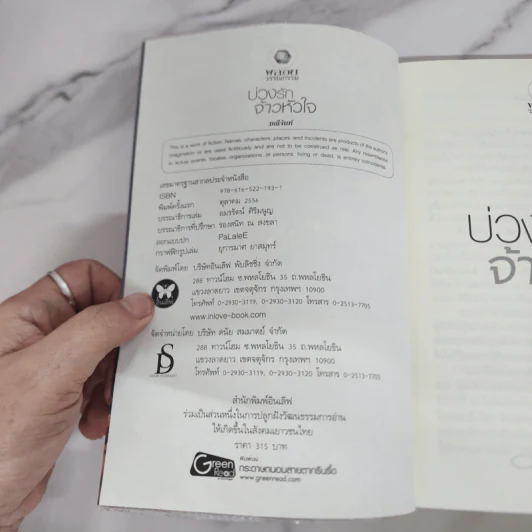 พลอย
วรรณกรรม
บ่วงรัก
จ้าวหัวใจ
มณีจันท์
This is a work of fiction. Names, characters, places and incidents are products of the author's
imagination or are used fictitiously and are not to be construed as real. Any resemblance
to actual events, locales, organizations, or persons, living or dead, is entirely coincidental.
เลขมาตรฐานสากลประจำหนังสือ
ISBN 978-616-522-193-1
พิมพ์ครั้งแรก ตุลาคม 2556
บรรณาธิการเล่ม อมรรัตน์ ศิริมนูญ
บรรณาธิการที่ปรึกษา รองสนิท ณ สงขลา
ออกแบบปก PaLaleE
กราฟฟิกรูปเล่ม ยุภารมาศ ยาสมุทร์
จัดพิมพ์โดย บริษัทอินเลิฟ พับลิชชิ่ง จำกัด
288 ทาวน์โฮม ซ.พหลโยธิน 35 ถ.พหลโยธิน
แขวงลาดยาว เขตจตุจักร กรุงเทพฯ 10900
โทรศัพท์ 0-2930-3119, 0-2930-3120 โทรสาร 0-2513-7705
อินเลิฟ
www.inlove-book.com
จัดจำหน่ายโดย บริษัท ดนัย สมมาตย์ จำกัด
288 ทาวน์โฮม ซ.พหลโยธิน 35 ถ.พหลโยธิน
แขวงลาดยาว เขตจตุจักร กรุงเทพฯ 10900
โทรศัพท์ 0-2930-3119, 0-2930-3120 โทรสาร 0-2513-7705
DS
สำนักพิมพ์อินเลิฟ
ร่วมเป็นส่วนหนึ่งในการปลูกฝังวัฒนธรรมการอ่าน
ให้เกิดขึ้นในสังคมเยาวชนไทย
ราคา 315 บาท
Green
Read
พิมพ์บน
กระดาษถนอมสายตากรีนรี้ด
www.greenread.com
บ่วง
จ้า